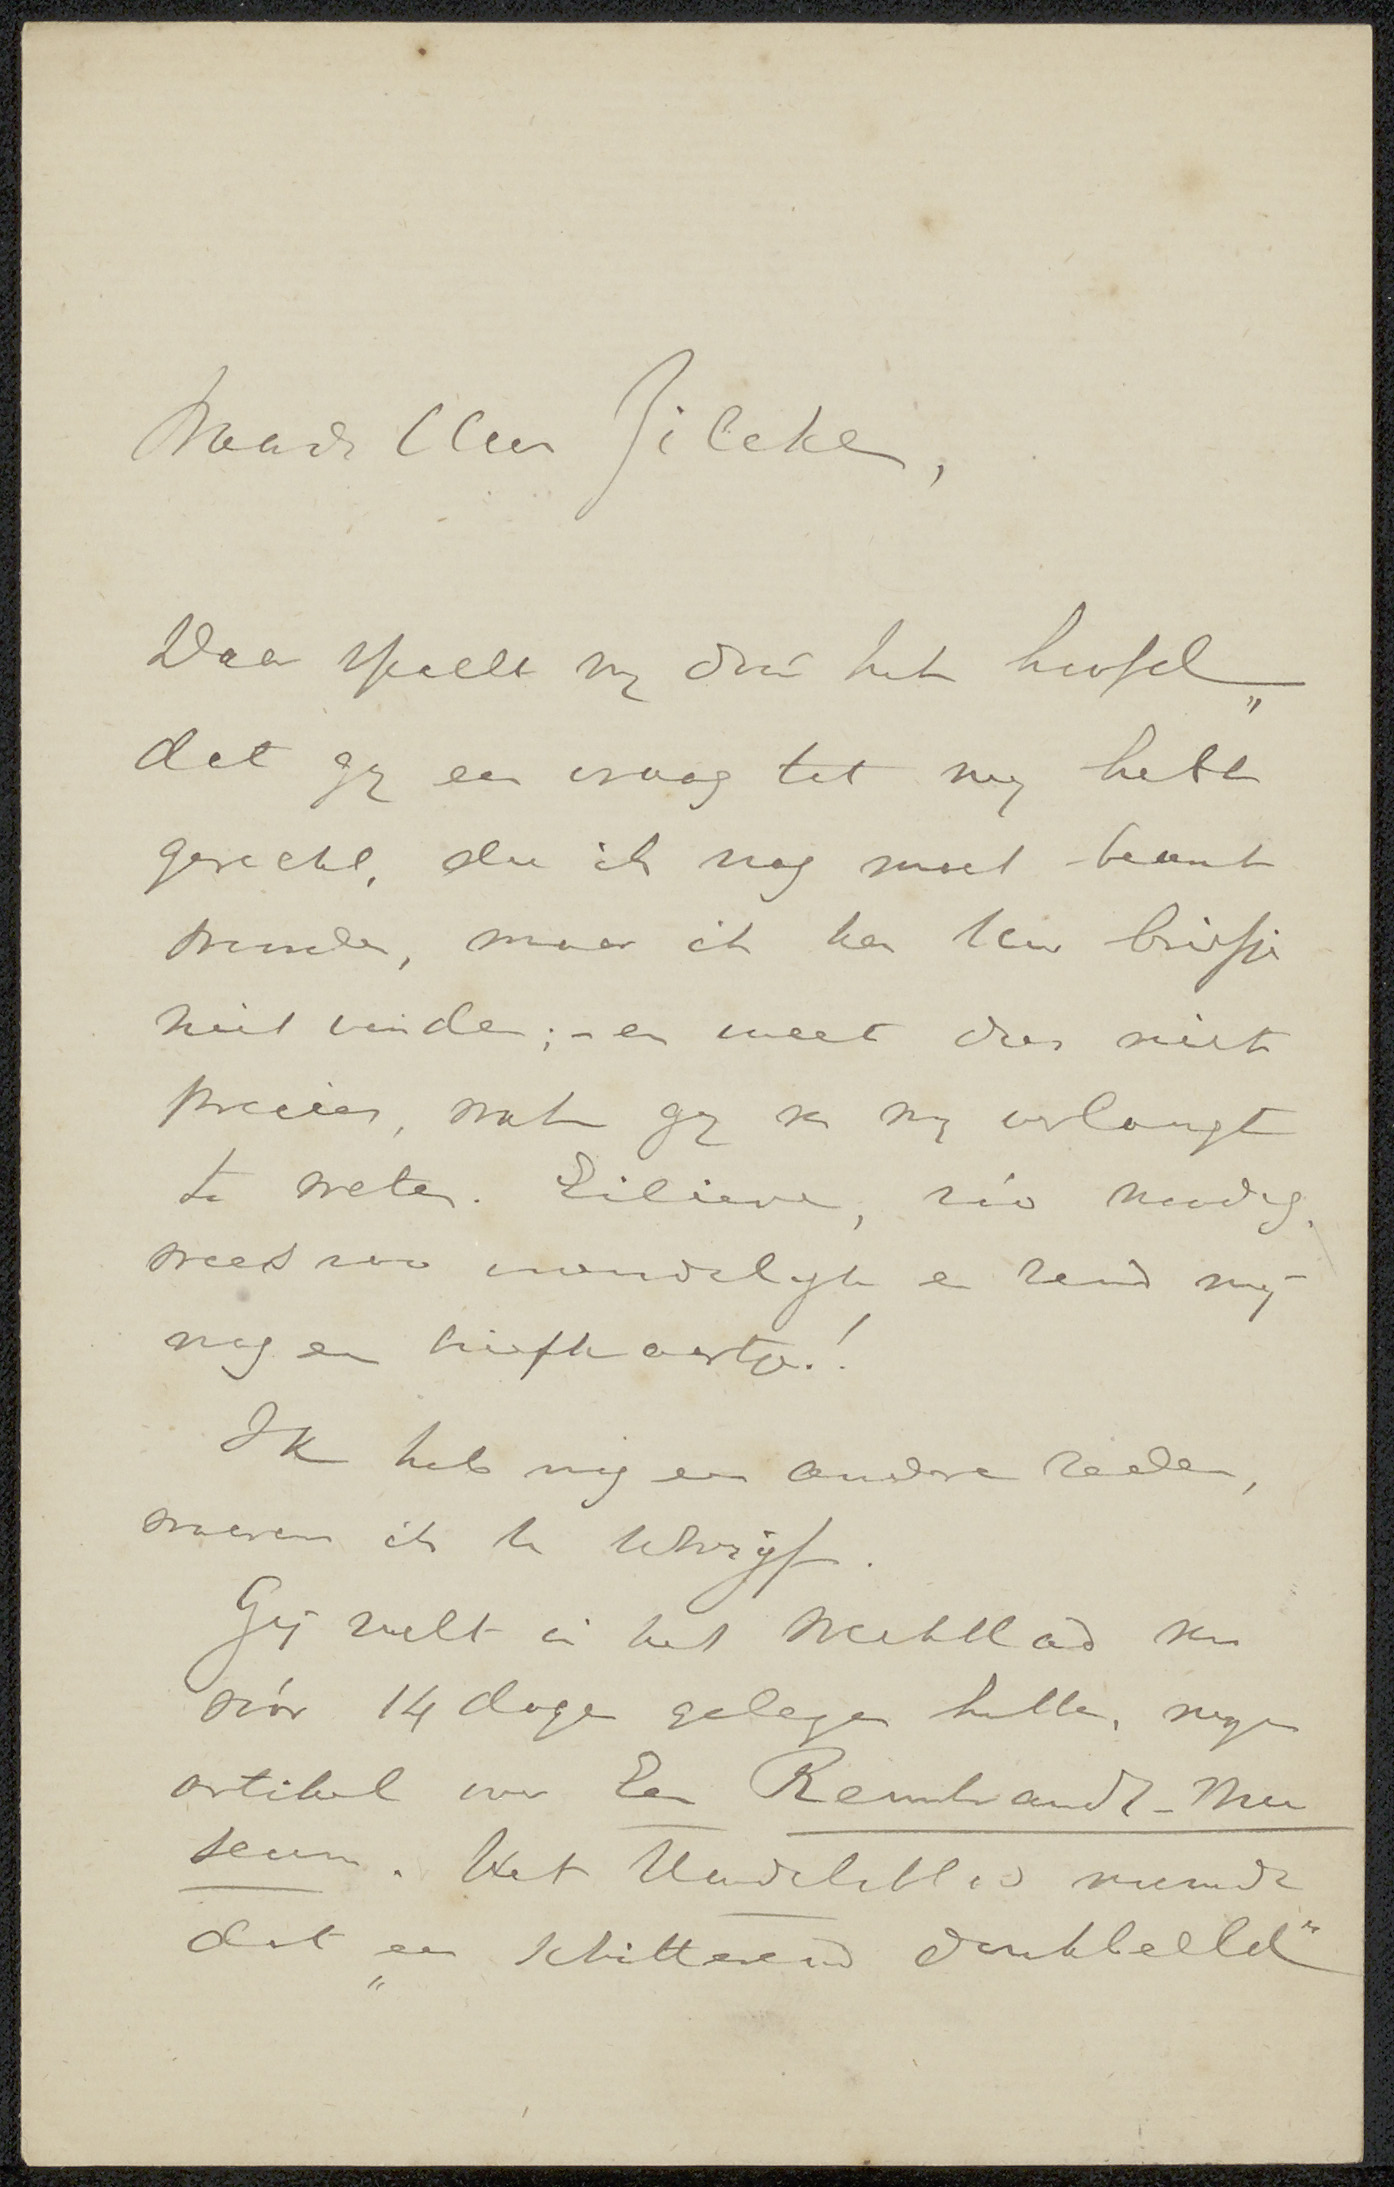 Waarde Heer Zilcken,
Daar speelt mij door het hoofd„
dat gij een vraag tot mij hebt
gericht, die ik nog moet beant
woorden, maar ik kan Uw briefje
niet vinden; - en weet dus niet
precies, wat gij van mij verlangt
te weten. Eilieve, zóó noodig,
wees zoo vriendelijk en zend mij
nog een briefkaartje!
Ik heb nog een andere reden,
waarom ik U schrijf.
Gij zult in het Weekblad van
vóór 14 dagen gelezen hebben, mijn
artikel over Een Rembrandt-Mu
seum. Het Handelsblad noemde
dat „een schitterend denkbeeld"